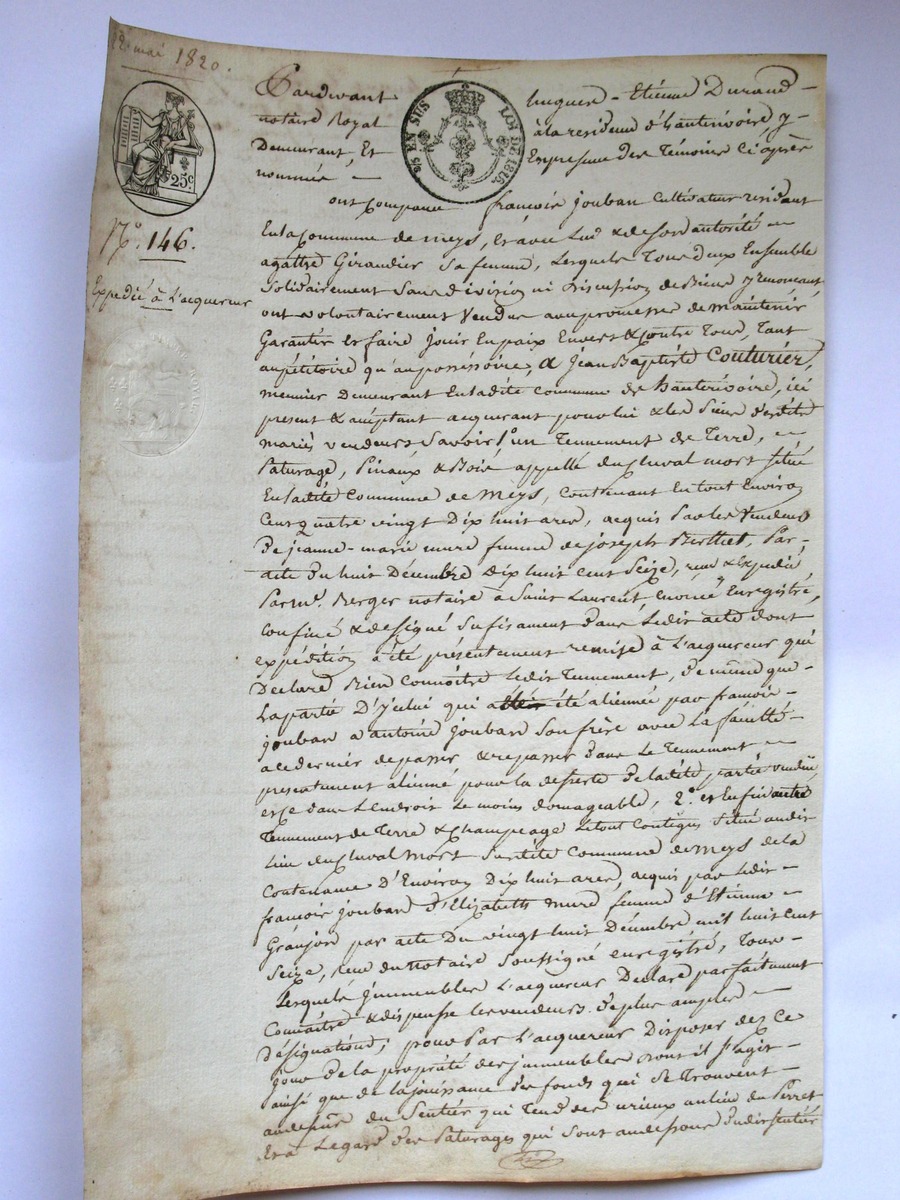 12 mai 1820.
25c
2/5 EN SUS LOI DE 1816.
N° 146.
Expedié à L'acquereur
Pardevant hugues - Etienne Durand -
notaire Royal à la residence d'hauterivoire y
Demeurant, Et En presence des Témoins Ci après
nommés -
ont Comparu françois joubau Cultivateur residant
En la Commune de meys, et avec Lui & de son autorité
agathe Giraudier Sa femme, Lesquels Tous deux Ensemble
Solidairement Sans division ni Discussion de Biens y renonçant
ont volontairement Vendu avec promesse de maintenir
Garantir et faire jouir En paix Envers & Contre Tous, Tant
au pétitoire qu'au possessoire, A jean Baptiste Couturier,
meunier Demeurant En ladite Commune de hauterivoire, ici
present & acceptant acquerant pour lui & les Siens desdits
mariés vendeurs, Savoir 1° un Tennement de Terre,
Paturage, Pinaux & Bois appellé du cheval mort Situé
En ladite Commune de meys, Contenant En tout Environ
Cent quatre vingt Dix huit ares, acquis Par les Vendeurs
de jeanne-marie mure femme de joseph Berthet, Par
acte du huit Décembre Dix huit cent Seize, reçu & Expedié
Par Me. Berger notaire à Saint Laurent Enregistré,
Confiné & désigné Sufisament dans Ledit acte dont
expédition a été présentement remise à L'acquereur qui
Declare Bien Connoître Ledit Tennement, de même que
La partie D'ycelui qui a été alienée par françois
joubau a antoine joubau Son frère avec La faculté
a ce dernier de passer & repasser dans Le Tennement
presentement aliené pour la deserte de ladite partie vendue,
et ce dans L'endroit Le moins domageable, 2° et Enfin autre
Tennement de Terre & Champeage Le tout Contigus Situé audit
Lieu du cheval mort Susdite Commune de meys de la
Contenance D'Environ Dix huit ares, acquis par ledit
françois joubau d'Elizabeth mure femme d'Etienne
Granjon par acte Du vingt huit Décembre mil huit cent
Seize, reçu du notaire Soussigné enregistré, Tous
Lesquels jmmeubles L'acquereur Declare parfaitement
Connaître & dispense les vendeurs de plus amples
Désignations; pour Par L'acquereur Disposer dez Ce
jour de la propriété des jmmeubles dont il S'agit
ainsi que de la jouissance des fonds qui Se Trouvent
au dessus du Sentier qui Tend des vrieux au lieu du Perret
Et à L'egard des Paturages qui Sont au dessous dudit Sentier